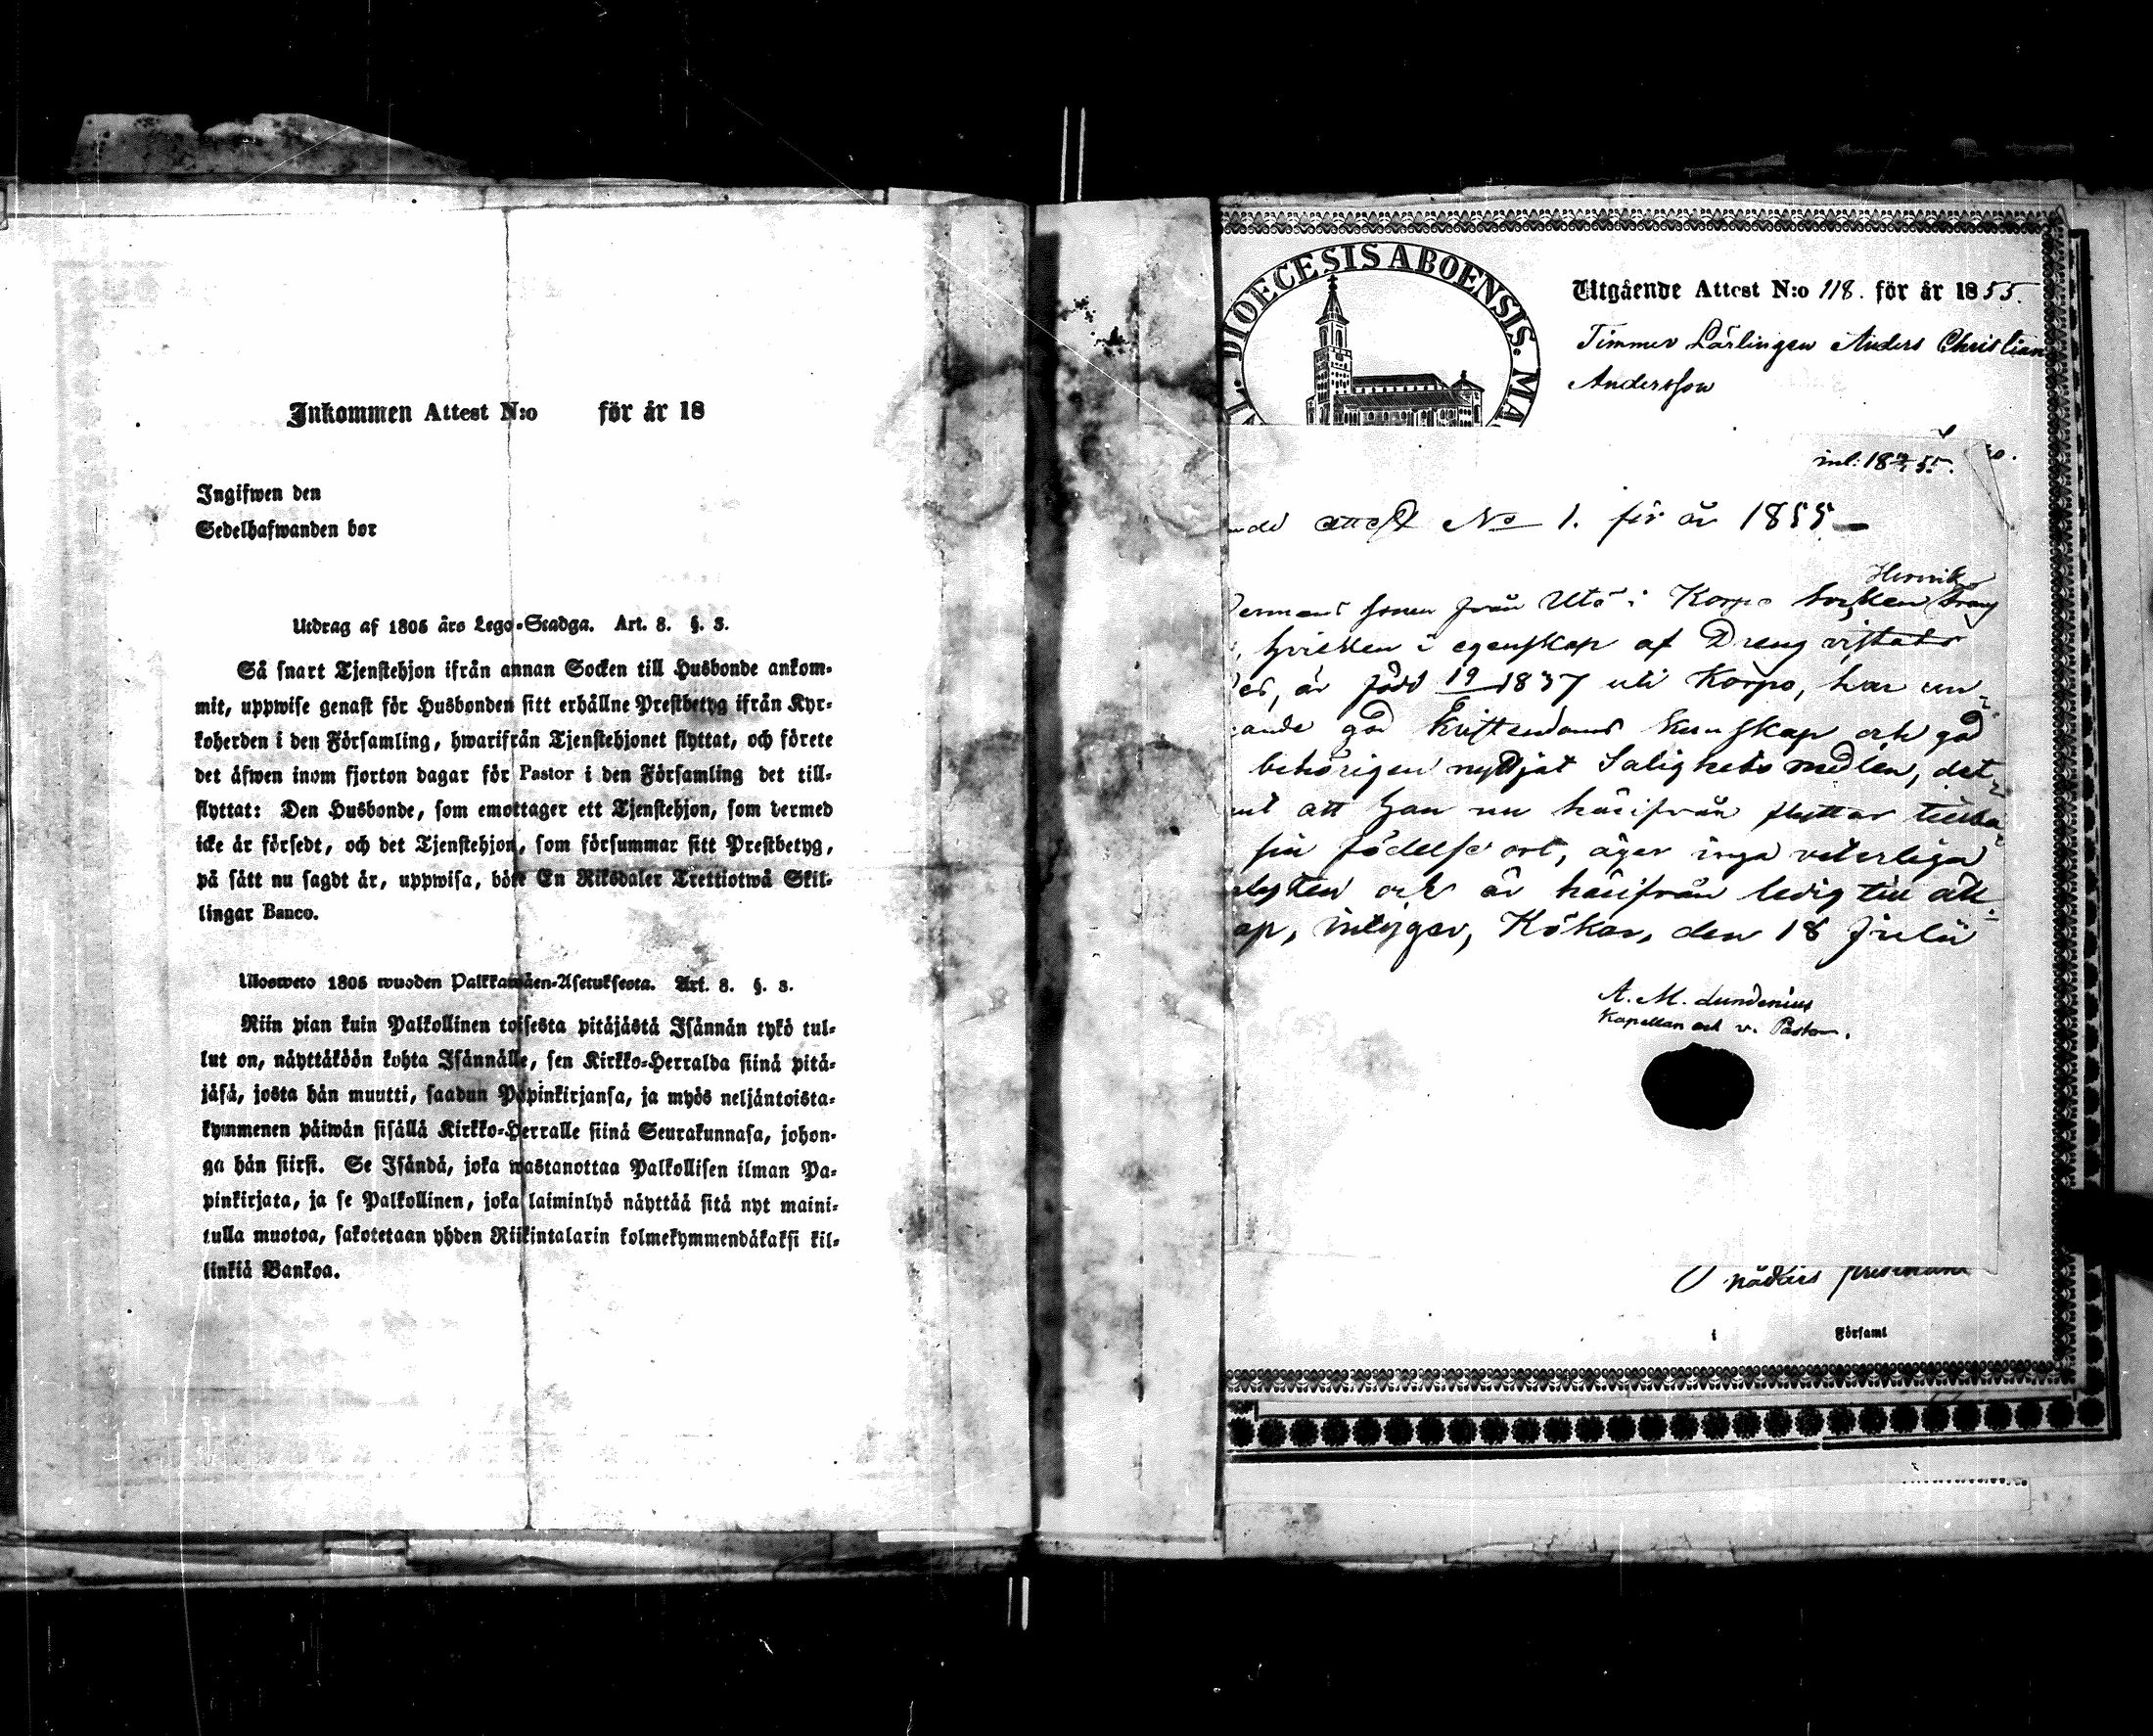 Inkommen Attest N:o för år 18
Ingifwen den
Sedelhafwanden bor
Utdrag af 1805 års Lego-Stadga. Art. 8. §. 3.
Så snart Tjenstehjon ifrån annan Socken till Husbonde ankom-
mit, uppwise genast för Husbonden sitt erhållne Prestbetyg ifrån Kyr-
koherden i den Församling, hwarifrån Tjenstehjonet flyttat, och förete
det äfwen inom fjorton dagar för Pastor i den Församling det till-
flyttat: Den Husbonde, som emottager ett Tjenstehjon, som dermed
icke är försedt, och det Tjenstehjon, som försummar sitt Prestbetyg,
på sätt nu sagdt är, uppwisa, böte En Riksdaler Trettiotwå Skil-
lingar Banco.
Ulosweto 1805 wuoden Palkkawäen-Asetuksesta. Art. 8. §. 3.
Niin pian kuin Palkollinen toisesta pitäjästä Isännän tykö tul-
lut on, näyttäköön kohta Isännälle, sen Kirkko-Herralda siinä pitä-
jäsä, josta hän muutti, saadun Papinkirjansa, ja myös neljäntoista-
kymmenen päiwän sisällä Kirkko-Herralle siinä Seurakunnasa, johon-
ga hän siirsi. Se Isändä, joka wastanottaa Palkollisen ilman Pa-
pinkirjata, ja se Palkollinen, joka laiminlyö näyttää sitä nyt maini-
tulla muotoa, sakotetaan yhden Riikintalarin kolmekymmendäkaksi kil-
linkiä Bankoa.
DIOECESIS ABOENSIS. MA
Utgående Attest N:o 118. för år 1855.
Timmer Lärlingen Anders Christian
Andersson
inl: 18 55.
attest No 1. för år 1855
Henrik
sonen från Utö i Korpo Socken
hvilken i egenskap af Dreng vistats
är född 19 1837 uti Korpo, har un-
ande god Kristendoms kunskap och god
behörigen nyttjat Salighets medlen, det
att han nu härifrån flyttar tillba-
sin födelse ort, äger inga veterliga
lyten och är härifrån ledig till äk-
ap, intygar, Kökar, den 18 Julii
A. M. Lundenius
Kapellan och v. Pastor.
i Församl